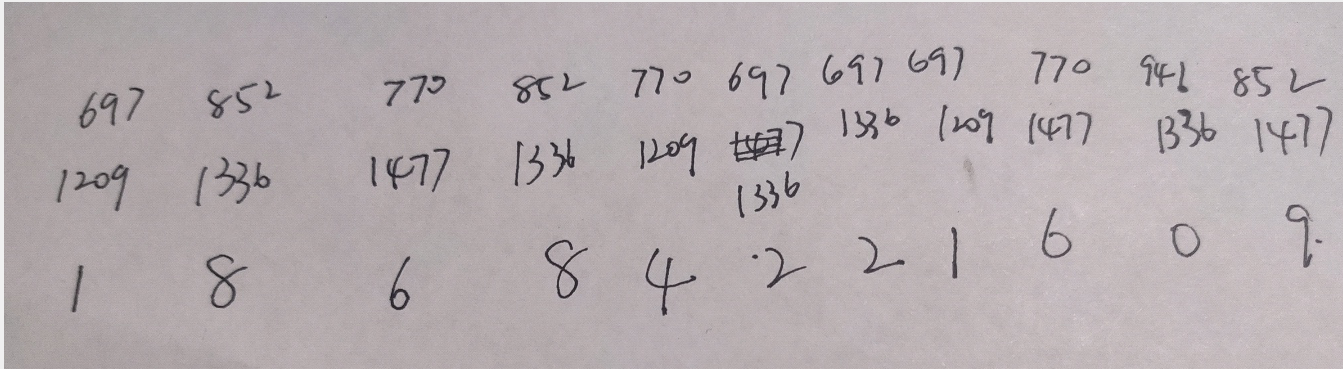 697 852 770 852 770 697 697 697 770 941 852
1209 1336 1477 1336 1209 1336 1209 1477 1336 1477
1336
1 8 6 8 4 2 2 1 6 0 9